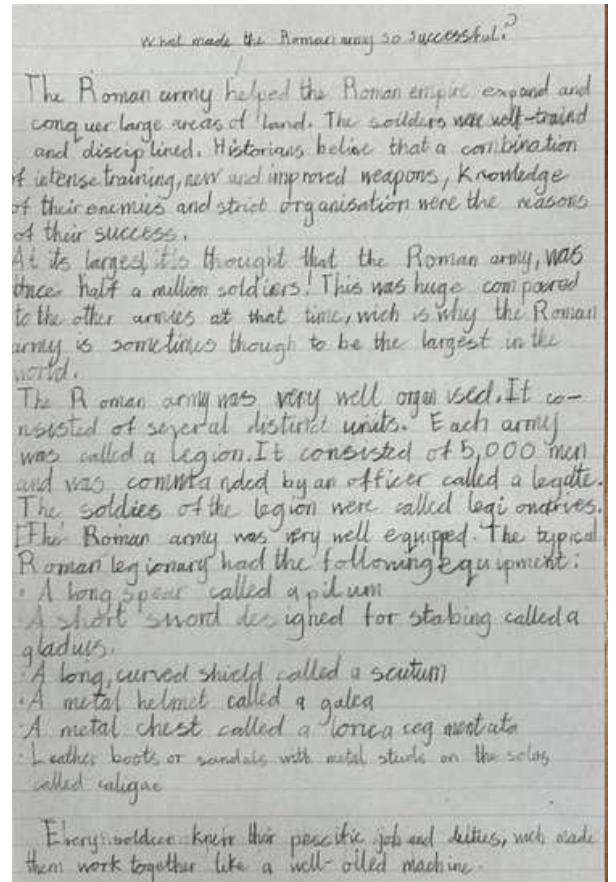 What made the Roman army so successful?
The Roman army helped the Roman empire expand and
conquer large areas of land. The soilders were well-traind
and disciplined. Historians belive that a combination
of intense training, new and improved weapons, knowledge
of their enemies and strict organisation were the reasons
of their success.
At its largest, it is thought that the Roman army, was
half a million soldiers! This was huge compared
to the other armies at that time, wich is why the Roman
army is sometimes though to be the largest in the
world.
The Roman army was very well organised. It co-
nsisted of several distinct units. Each army
was called a legion. It consisted of 5,000 men
and was commanded by an officer called a legate.
The soldies of the legion were called legionaries.
[The Roman army was very well equipped. The typical
Roman legionary had the following equipment:
· A long spear called a pilum
· A short sword designed for stabing called a
gladuis.
· A long, curved shield called a scutum
· A metal helmet called a galea
· A metal chest called a lorica segmentata
· Leather boots or sandals with metal studs on the soles
called caligae
Every soldier knew their pescific job and, wich made
them work together like a well-oiled machine.